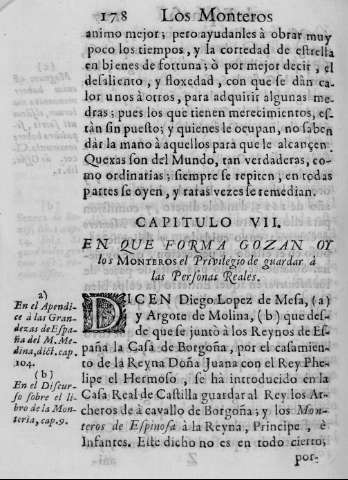 178 Los Monteros
animo mejor; pero ayudanles à obrar muy
poco los tiempos, y la cortedad de estrella
en bienes de fortuna; ò por mejor decir, el
desaliento, y floxedad, con que se dàn ca-
lor unos à otros, para adquirir algunas me-
dras; pues los que tienen merecimientos, es-
tàn sin puesto; y quienes le ocupan, no saben
dàr la mano à aquellos para que le alcançen.
Quexas son del Mundo, tan verdaderas, co-
mo ordinarias; siempre se repiten, en todas
partes se oyen, y raras vezes se remedian.
CAPITULO VII.
EN QUE FORMA GOZAN OY
los MONTEROS el Privilegio de guardar à
las Personas Reales.
DICEN Diego Lopez de Mesa, (a)
y Argote de Molina, (b) que des-
de que se juntò à los Reynos de Es-
paña la Casa de Borgoña, por el casamien-
to de la Reyna Doña Juana con el Rey Phe-
lipe el Hermoso, se ha introducido en la
Casa Real de Castilla guardar al Rey los Ar-
cheros de à cavallo de Borgoña; y los Monteros
de Espinosa à la Reyna, Principe, è
Infantes. Este dicho no es en todo cierto;
por-
a)
En el Apendi-
ce à las Gran-
dezas de Espa-
ña del M. Me-
dina, dict. cap.
104.
(b)
En el Discur-
so sobre el li-
bro de la Mon-
teria, cap. 9.